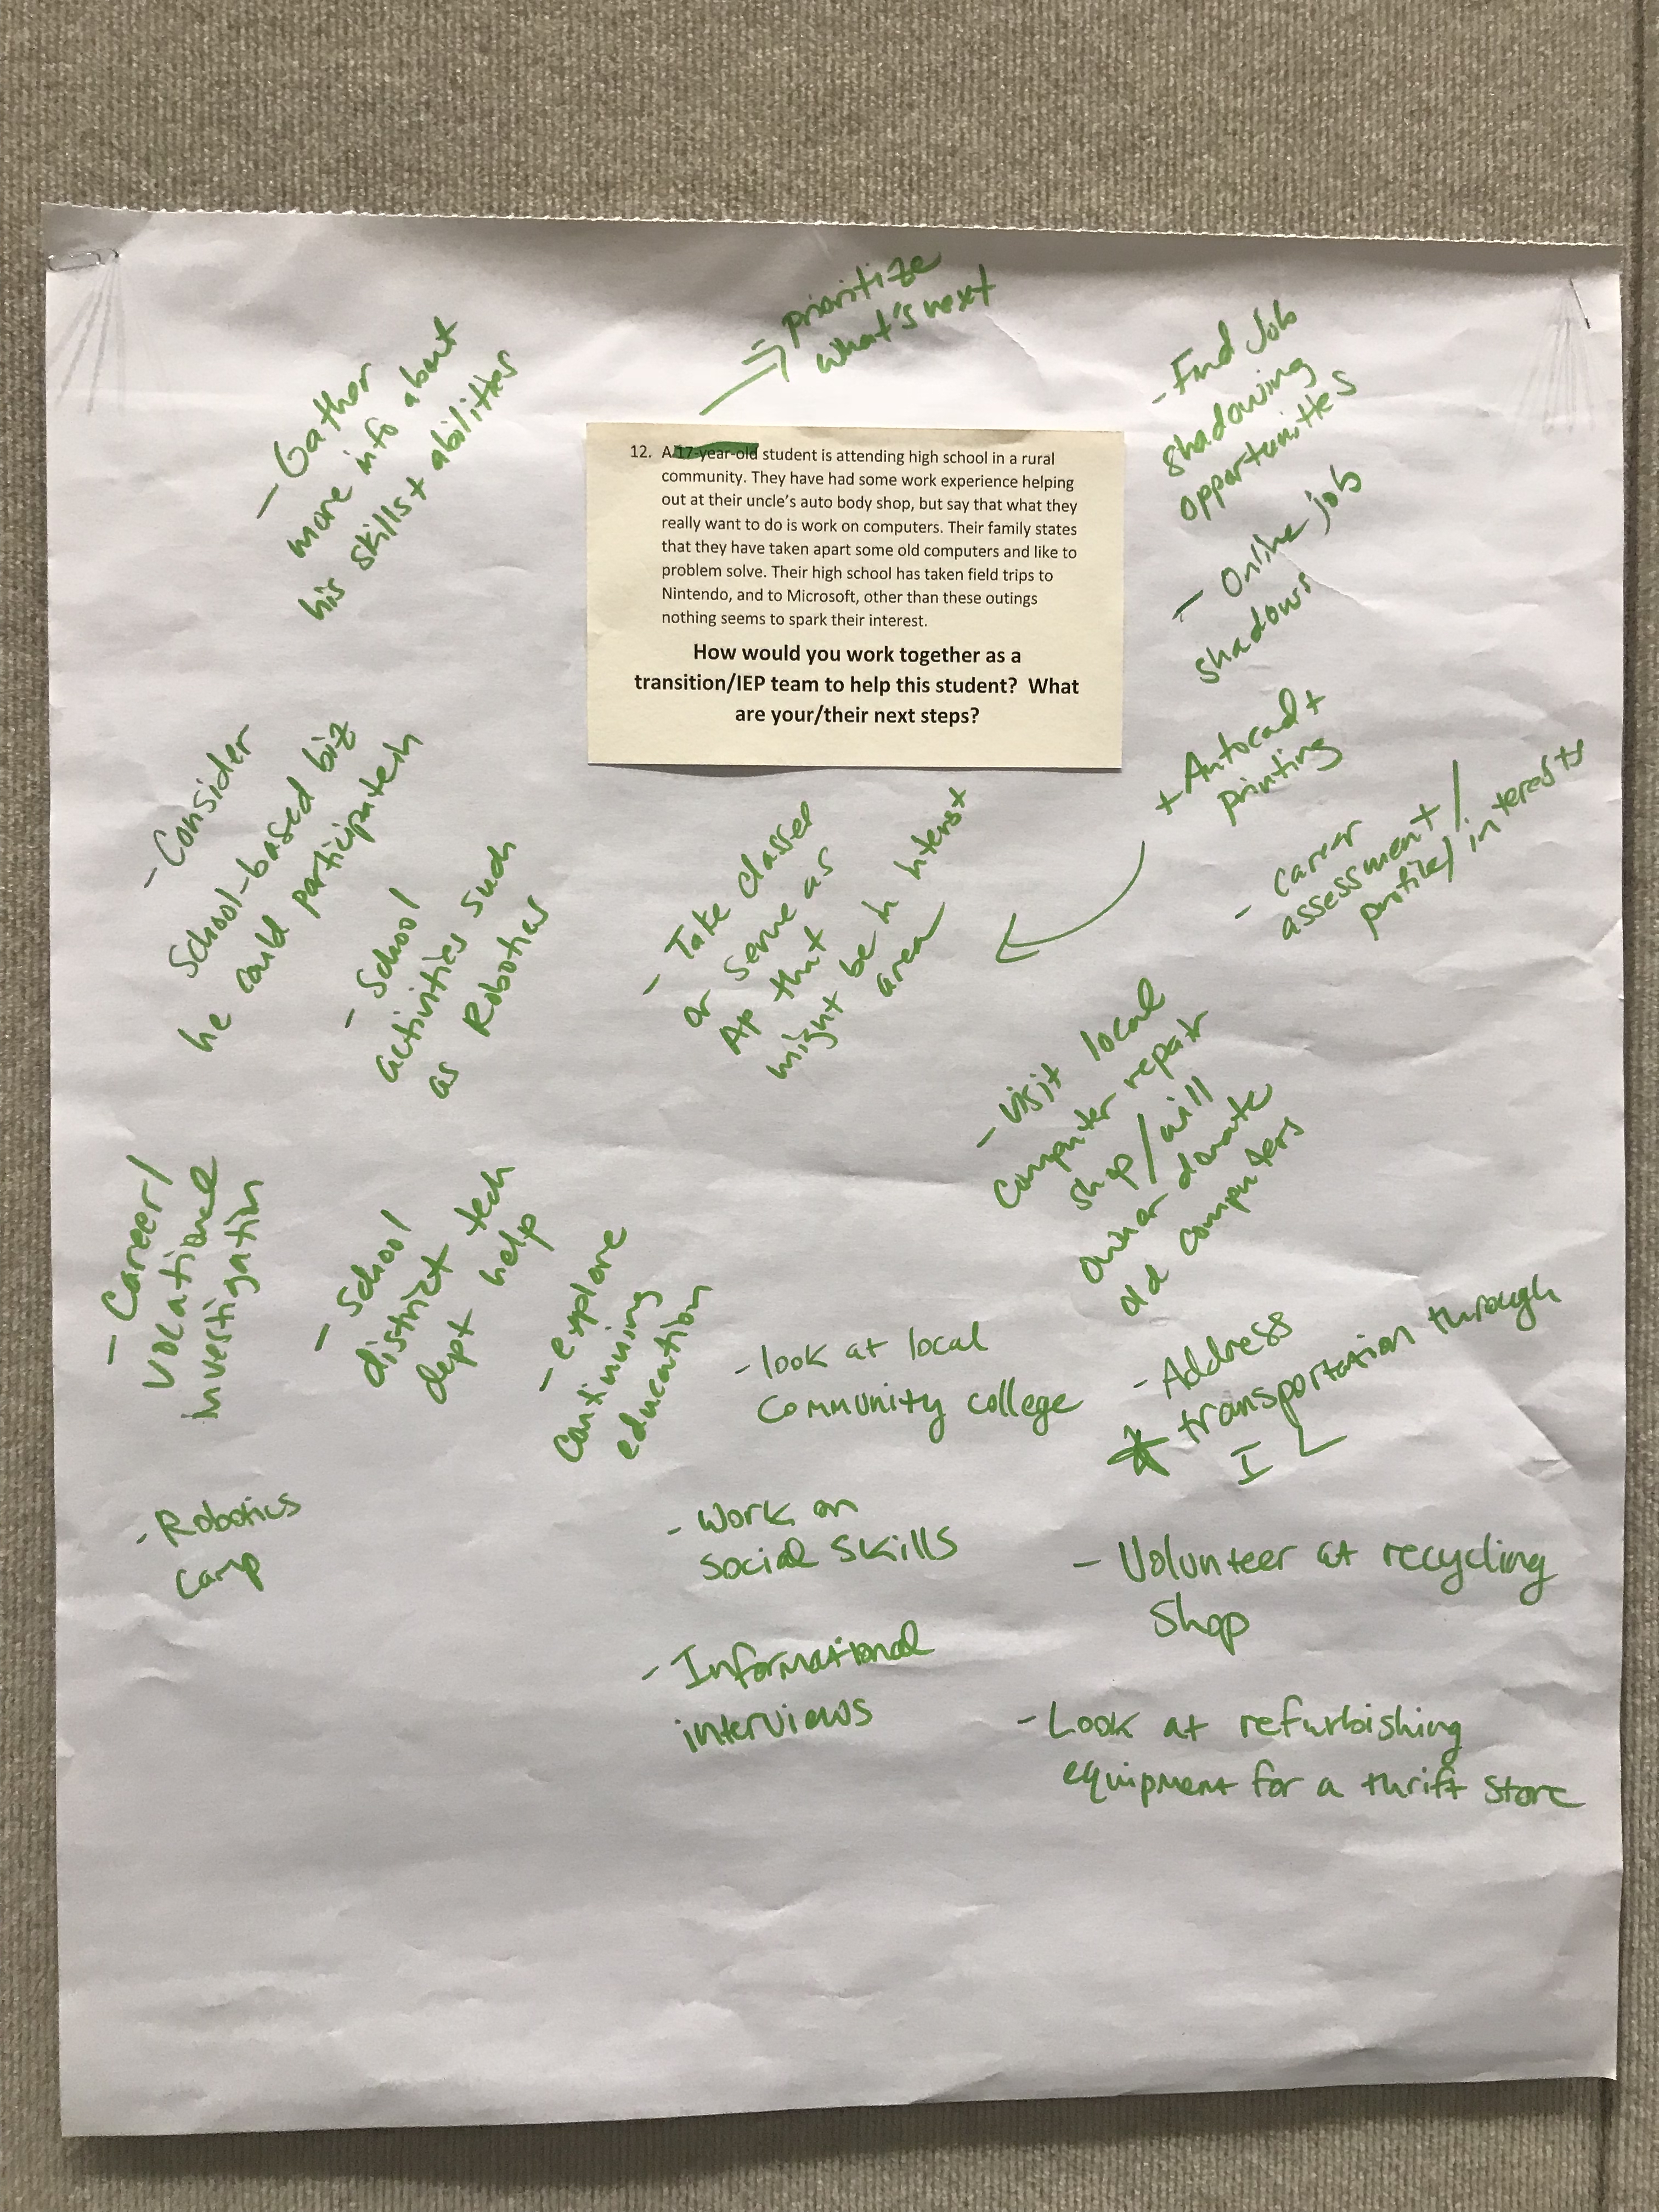 prioritize
what's next
12. A 17-year-old student is attending high school in a rural
community. They have had some work experience helping
out at their uncle's auto body shop, but say that what they
really want to do is work on computers. Their family states
that they have taken apart some old computers and like to
problem solve. Their high school has taken field trips to
Nintendo, and to Microsoft, other than these outings
nothing seems to spark their interest.
How would you work together as a
transition/IEP team to help this student? What
are your/their next steps?
- Gather
more info about
his skills + abilities
- Find Job
shadowing
opportunities
- Online job
shadows
+ Autocad +
printing
- career
assessment/
profile/interests
- Consider
School-based biz
he could participate in
- School
activities such
as Robotics
- Take classes
or serve as
AP that
might be in interest
area
- visit local
computer repair
shop/will
owner donate
old computers
- Career/
vocational
investigation
- School
district tech
dept help
- explore
continuing
education
- look at local
community college
- Address
* transportation through
IL
- Robotics
camp
- Work on
social skills
- Volunteer at recycling
shop
- Informational
interviews
- Look at refurbishing
equipment for a thrift store